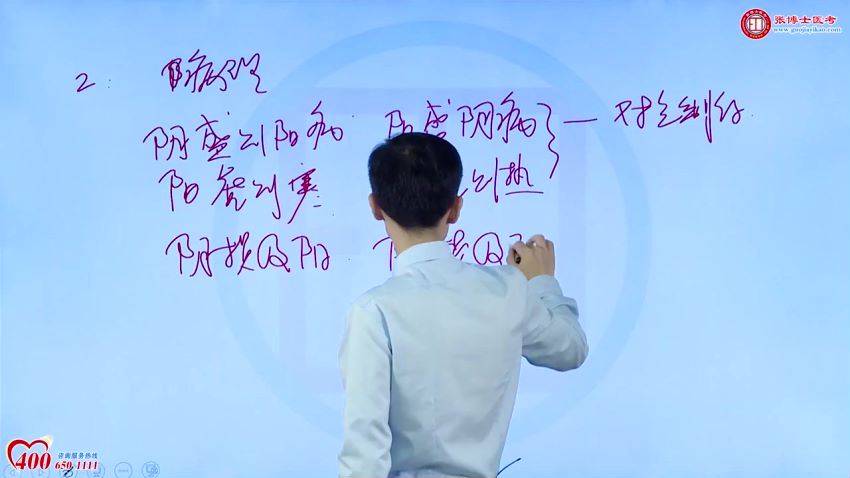 张博士医考
www.guojiayikao.com
2: 病理
阴盛则阳病 阳盛阴病 — 对立制约
阳虚则寒 则热
阴损及阳 损及
咨询服务热线
400 650-1111